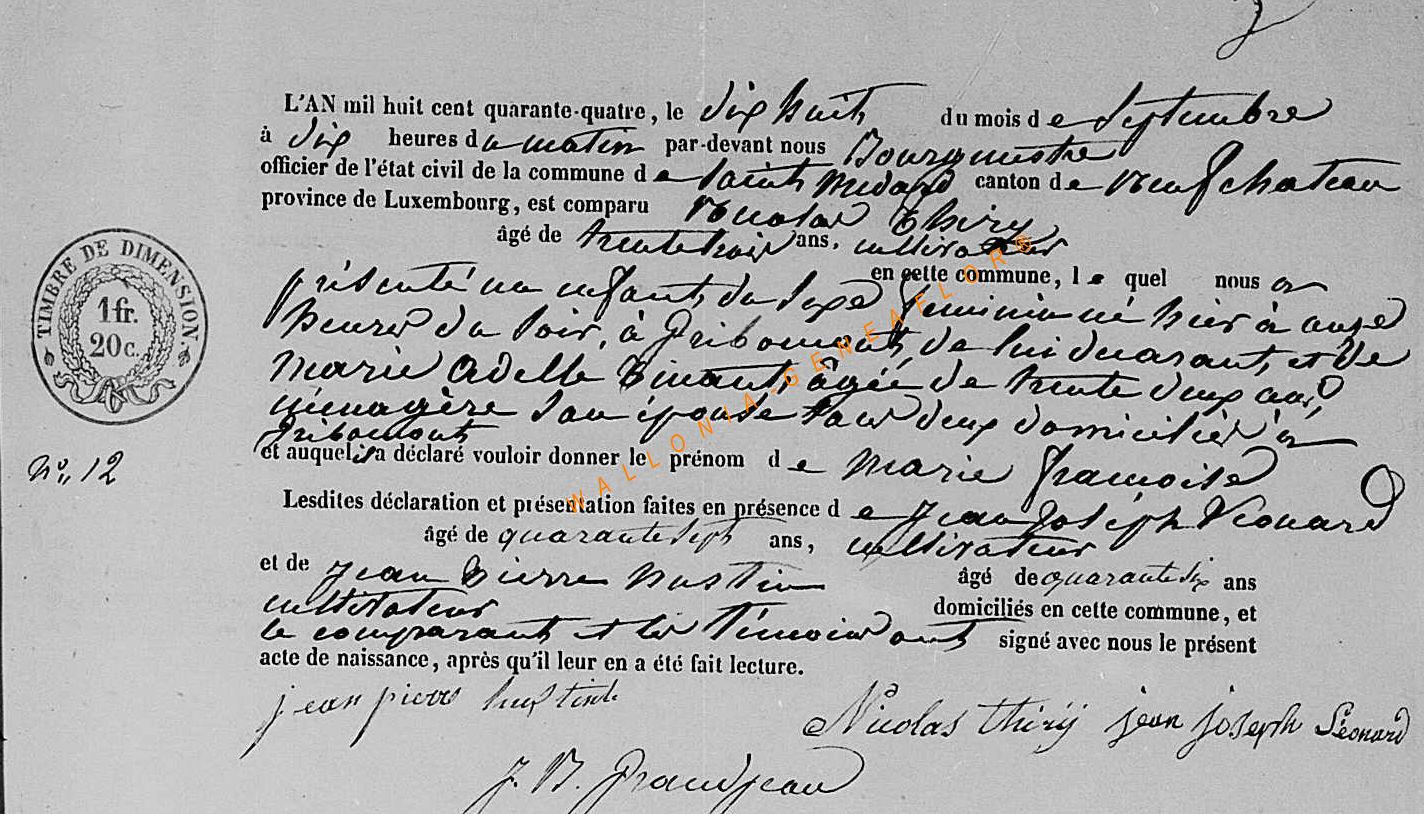 L'AN mil huit cent quarante-quatre, le dix huit du mois de Septembre
à dix heures du matin par-devant nous Bourgmestre
officier de l'état civil de la commune de Saint Médard canton de Neufchateau
province de Luxembourg, est comparu Nicolas Thiry
âgé de trente trois ans, cultivateur
en cette commune, lequel nous a
présenté un enfant du sexe feminin né hier à onze
heures du soir, à Gribomont, de lui déclarant, et de
Marie Adelle âgée de trente deux ans,
ménagère son épouse tous deux domiciliés à
Gribomont
et auquel il a déclaré vouloir donner le prénom de Marie françoise
Lesdites déclaration et présentation faites en présence de Jean Joseph Léonard
âgé de quarante sept ans, cultivateur
et de Jean Pierre Hustin âgé de quarante six ans
cultivateur domiciliés en cette commune, et
le comparant et les témoins ont signé avec nous le présent
acte de naissance, après qu'il leur en a été fait lecture.
jean pierre
Nicolas thiry jean joseph Léonard
J. B. Grandjean
TIMBRE DE DIMENSION
1 fr.
20 c.
N° 12
WALLONIA-GENEAFLORE